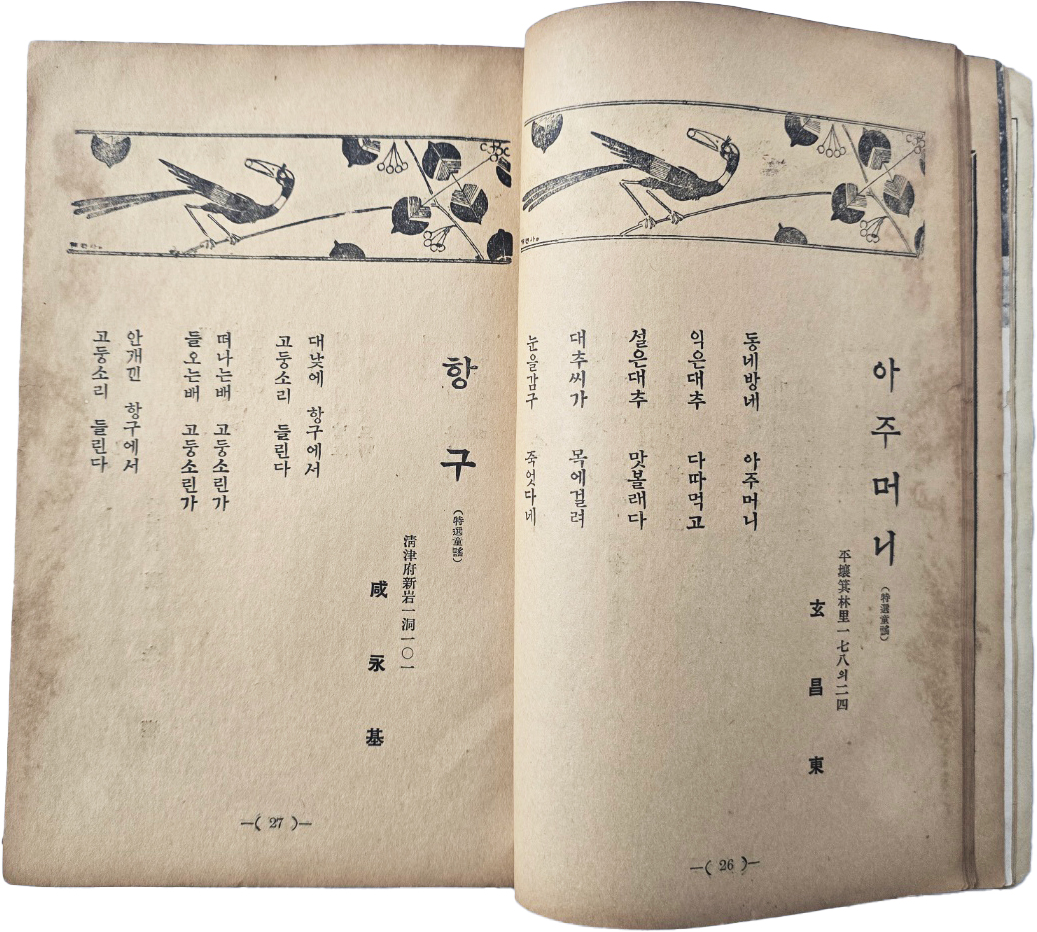 아주머니 (特選童謠)
平壤箕林里一七八의二四
玄昌東
동네방네 아주머니
익은대추 다따먹고
설은대추 맛볼래다
대추씨가 목에걸려
눈을감구 죽엇다네
—( 26 )—
항구 (特選童謠)
淸津府新岩一洞一〇一
咸永基
대낮에 항구에서
고둥소리 들린다
떠나는배 고둥소린가
들오는배 고둥소린가
안개낀 항구에서
고둥소리 들린다
—( 27 )—